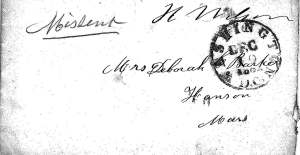 Missent
H Wilson
WASHINGTON
DEC
D.C.
Mrs Deborah Barker
Hanson
Mass